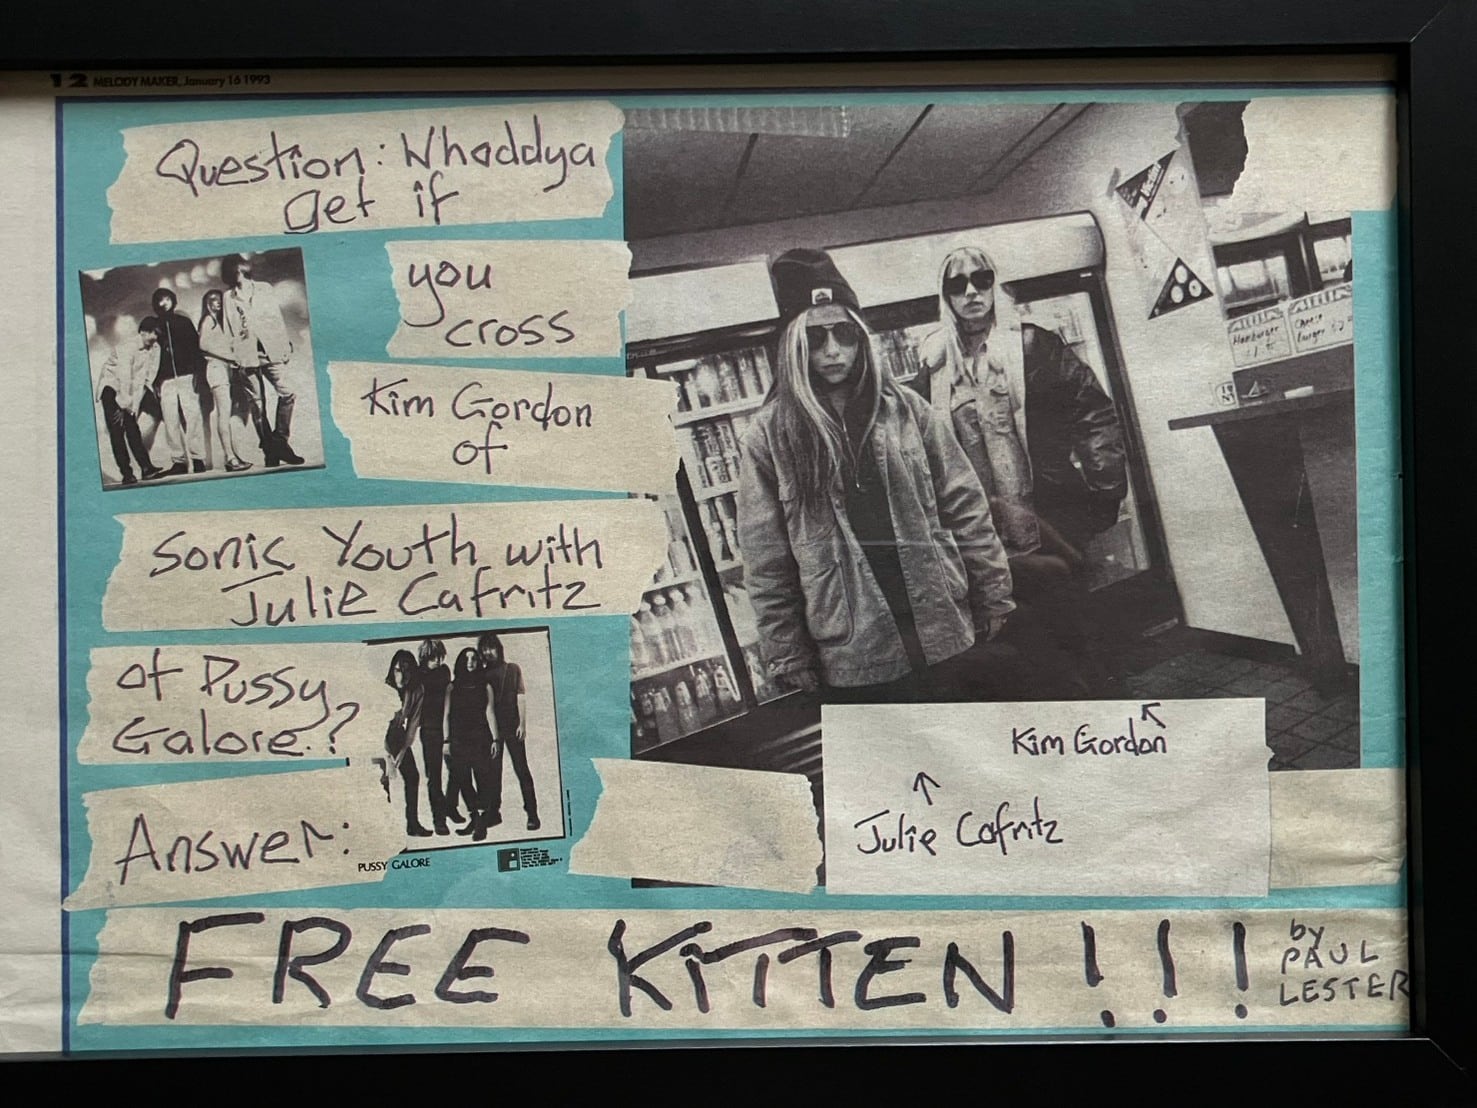 12 MELODY MAKER, January 16 1993
Question: Whaddya
get if
you
cross
Kim Gordon
of
Sonic Youth with
Julie Cafritz
of Pussy
Galore?
Answer:
PUSSY GALORE
Hamburger
Kim Gordon
Julie Cafritz
FREE KITTEN!!!
by
PAUL
LESTER